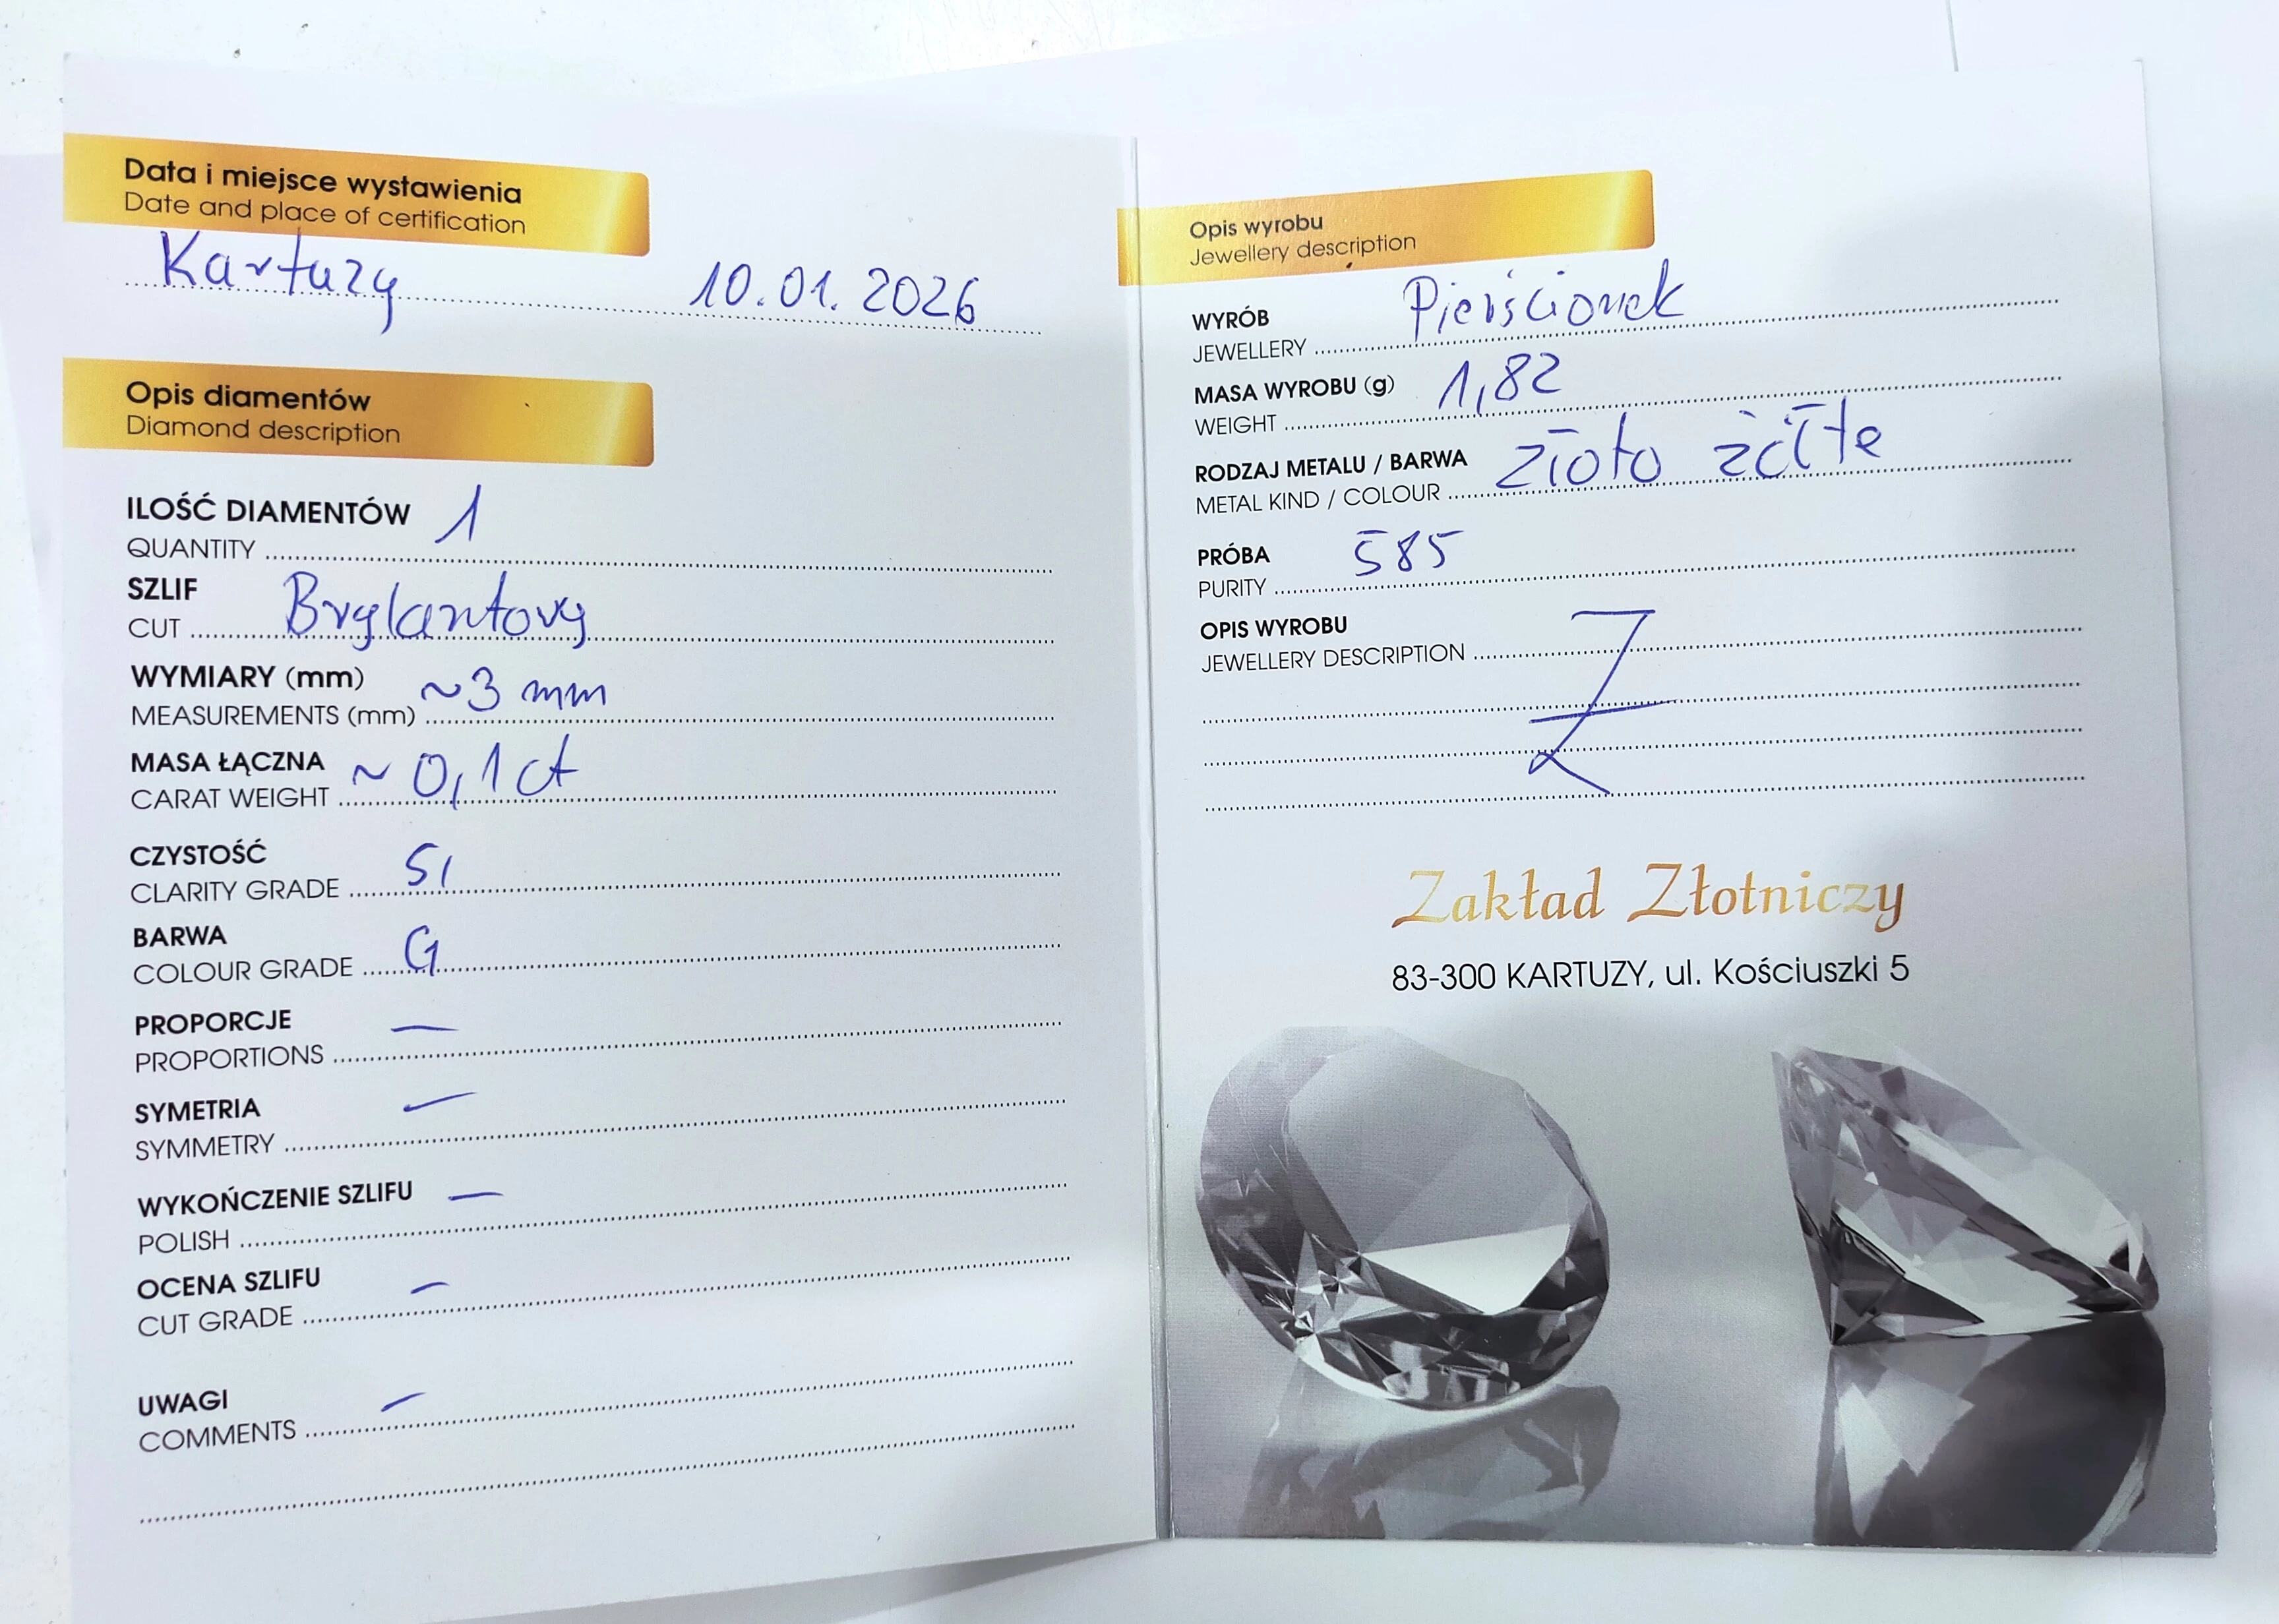 Data i miejsce wystawienia
Date and place of certification
Kartuzy 10.01.2026
Opis diamentów
Diamond description
ILOŚĆ DIAMENTÓW 1
QUANTITY
SZLIF
CUT Brylantowy
WYMIARY (mm) ~3 mm
MEASUREMENTS (mm)
MASA ŁĄCZNA ~0,1 ct
CARAT WEIGHT
CZYSTOŚĆ SI
CLARITY GRADE
BARWA G
COLOUR GRADE
PROPORCJE —
PROPORTIONS
SYMETRIA —
SYMMETRY
WYKOŃCZENIE SZLIFU —
POLISH
OCENA SZLIFU —
CUT GRADE
UWAGI —
COMMENTS
Opis wyrobu
Jewellery description
WYRÓB Pierścionek
JEWELLERY
MASA WYROBU (g) 1,82
WEIGHT
RODZAJ METALU / BARWA złoto żółte
METAL KIND / COLOUR
PRÓBA 585
PURITY
OPIS WYROBU
JEWELLERY DESCRIPTION
Zakład Złotniczy
83-300 KARTUZY, ul. Kościuszki 5